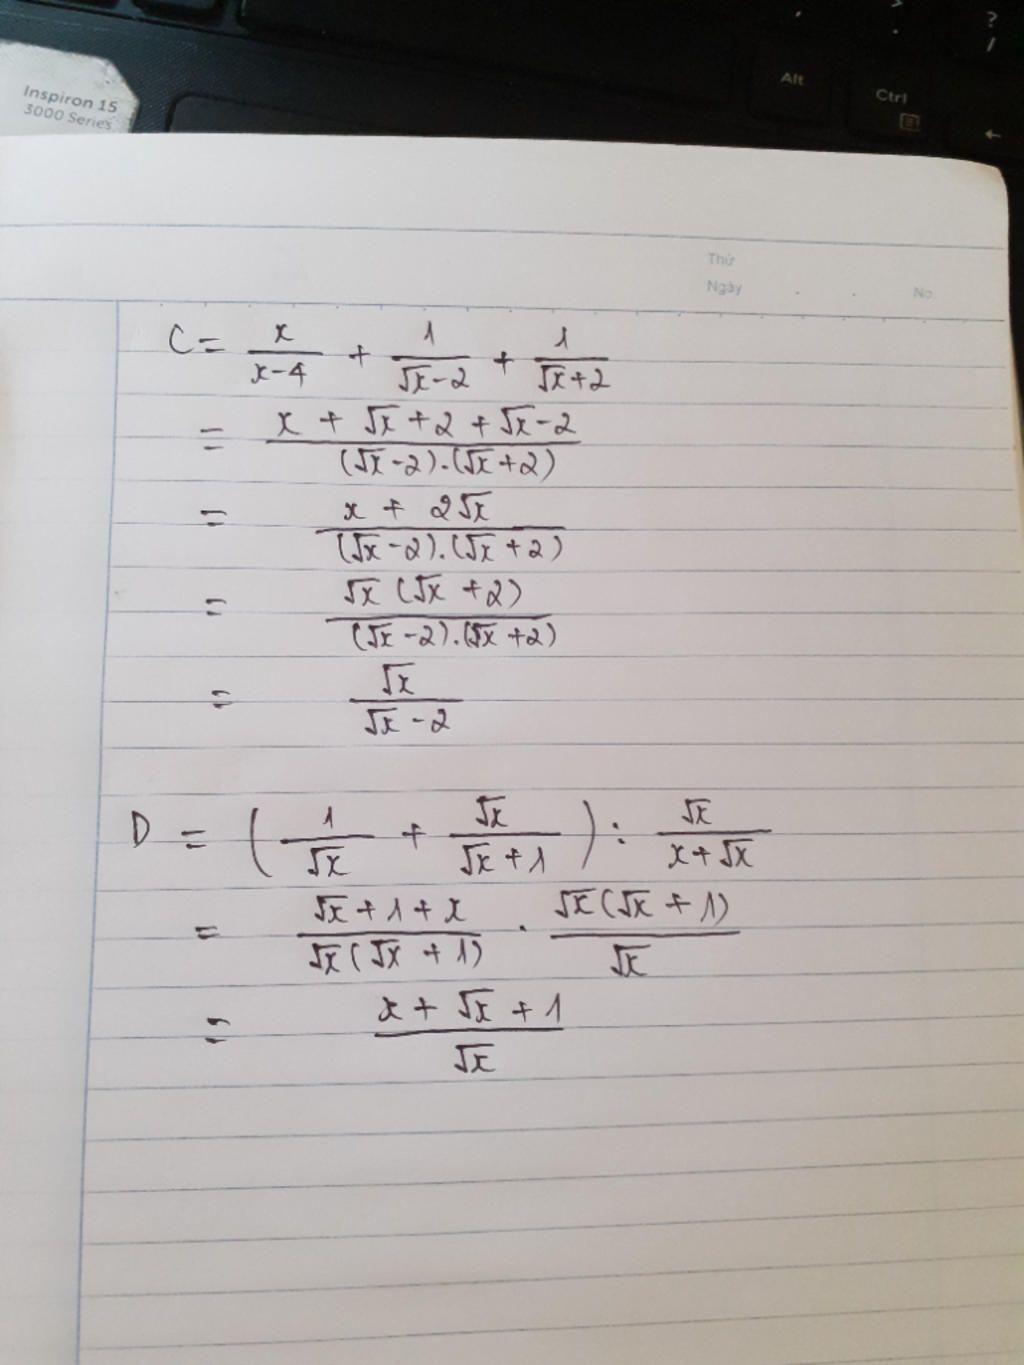 Inspiron 15
3000 Series
Alt
Ctrl
, > . ? /
←
Thứ
Ngày . . No.
C = x/(x-4) + 1/(√x-2) + 1/(√x+2)
= (x + √x + 2 + √x - 2)/((√x-2).(√x+2))
= (x + 2√x)/((√x-2).(√x+2))
= (√x(√x+2))/((√x-2).(√x+2))
= √x/(√x-2)
D = (1/√x + √x/(√x+1)) : √x/(x+√x)
= (√x+1+x)/(√x(√x+1)) . (√x(√x+1))/√x
= (x+√x+1)/√x